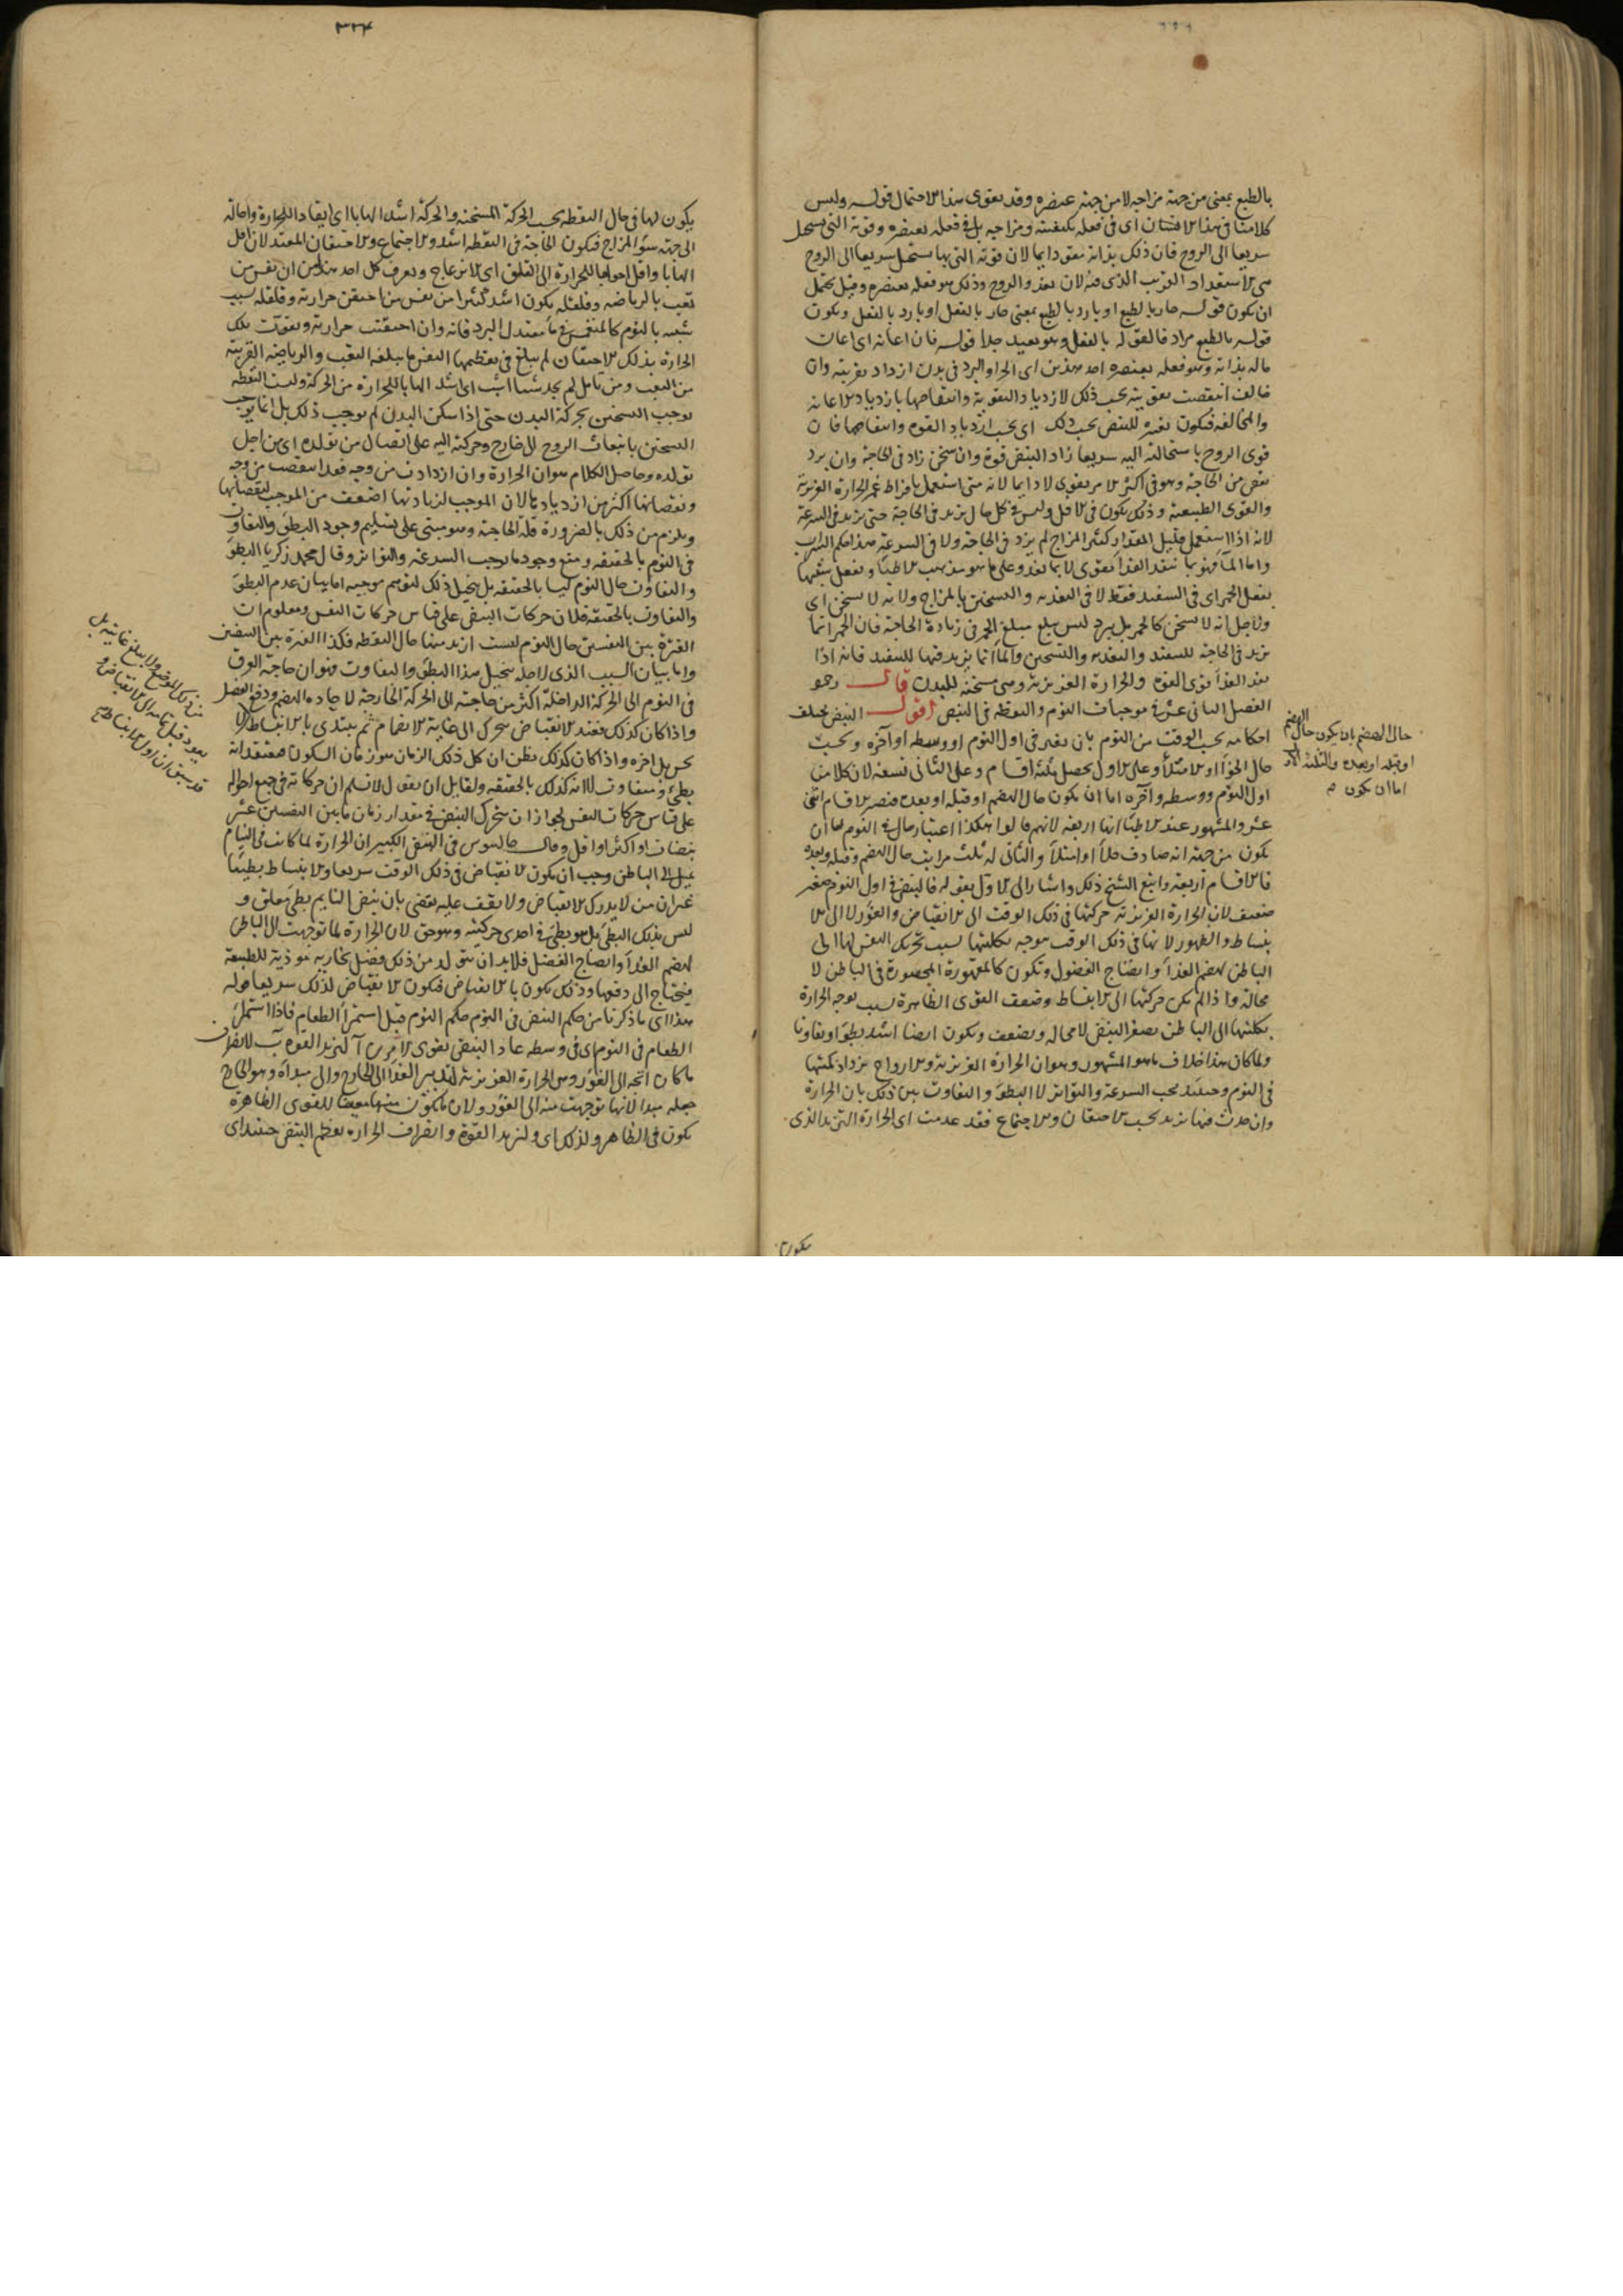 بالطبع بمعنى من جهة مزاجه لا من جهة عنصره وقد يقوى هذا الاحتمال قوله وليس
كلامنا فى هذا الا فى اى فى فعله بكيفيته ومزاجه بل فى فعله بعنصره وقوته التى يستحيل
سريعا الى الروح فان ذلك بذاته مقو دايما لان قوته التى بها يستحيل سريعا الى الروح
هى الاستعداد القريب الذى فيه لان يغذو الروح وذلك هو فعله بعنصره وقيل يحتمل
ان يكون قوله حار بالطبع او بارد بالطبع بمعنى حار بالفعل او بارد بالفعل ويكون
قوله بالطبع مراد فا لقوله بالفعل وهو بعيد جدا قوله فان اعانه اى اعان
ما له بذاته وهو فعله بعنصره احد هذين اى الحر او البرد فى بدن ازداد تقويته وان
خالف انتقصت تقويته بحسب ذلك لازدياد التقوية وانتقاصها بازدياد الاعانة
والمخالفة فيكون تغيره للنبض بحسب ذلك اى بحسب ازدياد القوه وانتقاصها فان
قوى الروح باستحالته اليه سريعا زاد النبض قوة وان سخن زاد فى الحاجة وان برد
نقص من الحاجة وهو فى اكثر الامر يقوى لا دايما لانه متى استعمل بافراط غمر الحرارة الغريزية
والقوى الطبيعية وذلك يكون فى الاقل وليس فى كل حال يزيد فى الحاجة حتى يزيد فى السرعة
لانه اذا استعمل قليل المقدار كثير المزاج لم يزد فى الحاجة ولا فى السرعة هذا حكم الشراب
واما الماء فهو بما ينفذ الغذاء يقوى لا بما يغذو على ما هو مذهب الاطباء ويفعل شبيها
بفعل الخمر اى فى التنفيذ فقط لا فى التغذية والتسخين بالمزاج ولانه لا يسخن اى
ولاجل انه لا يسخن كالخمر بل يبرد ليس يبلغ مبلغ الخمر فى زيادة الحاجة فان الخمر انما
يزيد فى الحاجة للتنفيذ والتغذية والتسخين والماء انما يزيد فيها للتنفيذ فانه اذا
نفذ الغذاء قوى القوه والحرارة الغريزية وهى مسخنة للبدن قال رحمه
الفصل الثانى عشر فى موجبات النوم واليقظة فى النبض اقول النبض يختلف
احكامه بحسب الوقت من النوم بان يعتبر فى اول النوم او وسطه او آخره وبحسب
حال الخوا او الامتلاء وعلى الاول يحصل ثلثة اقسام وعلى الثانى تسعة لان كلا من
اول النوم ووسطه وآخره اما ان يكون حال الهضم او قبله او بعده فتصير الاقسام اثنى
عشر والمشهور عند الاطباء انها اربعة لانهم قالوا هكذا اعتبار حال النوم اما ان
يكون من جهة انه صادف خلاء او امتلاء والثانى له ثلث مراتب حال الهضم وقبله وبعده
فالاقسام اربعة واتبع الشيخ ذلك واشار الى الاول بقوله فالنبض فى اول النوم صغير
ضعيف لان الحرارة الغريزية حركتها فى ذلك الوقت الى الانقباض والغور لا الى الا
نبساط والظهور لانها فى ذلك الوقت موجه بكليتها بسبب تحريك النفس لها الى
الباطن لهضم الغذاء وانضاج الفضول وتكون كالمقهورة المحصورة فى الباطن لا
محالة واذا لم يكن حركتها الى الانبساط وضعف القوى الظاهرة بسبب توجه الحرارة
بكليتها الى الباطن يصغر النبض لا محاله ويضعف ويكون ايضا اشد بطؤا وتفاوتا
ولما كان هذا خلاف ما هو المشهور وهو ان الحرارة الغريزية والارواح يزداد كميتها
فى النوم وحينئذ يجب السرعة والتواتر لا البطؤ والتفاوت بين ذلك بان الحرارة
وان حدث فيها تزيد بحسب الاحتقان والاجتماع فقد عدمت اى الحرارة التزيد الذى
حال الهضم بان يكون حال الهضم
او قبله او بعده والثلثة
اما ان يكون م
يكون
٣٢٤
يكون لها فى حال اليقظه بحسب الحركة المسخنة والحركة اشد الهابا اى ايقادا للحرارة واحالة
الى جهة سوء المزاج فيكون الحاجة فى اليقظه اشد والاجتماع والاحتقان المعتدلان اقل
الهابا واقل احوالها للحرارة الى القلق اى الانزعاج ويعرف كل احد هذا من ان نفس من
تعب بالرياضه وقلقله يكون اشد كثيرا من نفس من احتقن حرارته وقلقله بسبب
شبيه بالنوم كالمنغمس فى ماء معتدل البرد فانه وان احتقنت حرارته وتقوت تلك
الحرارة بذلك الاحتقان لم يبلغ فى تعظيمها النفس ما يبلغه التعب والرياضه القريبة
من التعب ومن تامل لم يجد شيئا اشب اى اشد الهابا للحرارة من الحركة وليست اليقظه
توجب التسخين بحركة البدن حتى اذا سكن البدن لم توجب ذلك بل انما توجب
التسخين بانبعاث الروح الى خارج وحركته اليه على اتصال من تولده اى من اجل
تولده وحاصل الكلام هو ان الحرارة وان ازدادت من وجه فقد انتقصت من وجه
ونقصانها اكثر من ازديادها لان الموجب لزيادتها اضعف من الموجب لنقصانها
ويلزم من ذلك بالضرورة قلة الحاجة وهو مبنى على تسليم وجود البطؤ والتفاوت
فى النوم بالحقيقه ومنع وجود ما يوجب السرعة والتواتر وقال محمد زكريا البطؤ
والتفاوت حال النوم ليسا بالحقيقه بل يتخيل ذلك لتوهم موجبه اما بيان عدم البطؤ
والتفاوت بالحقيقه فلان حركات النبض على قياس حركات النفس ومعلوم ان
الفترة بين النفسين حال النوم ليست ازيد منها حال اليقظه فكذا الفترة بين النبضتين
واما بيان السبب الذى لاجله يتخيل هذا البطؤ والتفاوت فهو ان حاجة العروق
فى النوم الى الحركة الداخلة اكثر من حاجته الى الحركة الخارجة لاجادة الهضم ودفع الفضل
واذا كان كذلك فعند الانقباض يتحرك الى غاية الانضمام ثم يبتدى بالانبساط لا
يحس بل اخره واذا كان كذلك يظن ان كل ذلك الزمان هو زمان السكون فيعتقد انه
بطئ ومتفاوت لا انه كذلك بالحقيقه ولقايل ان يقول لا نسلم ان حركاته فى جميع احواله
على قياس حركات النفس لجواز ان يتحرك النبض فى مقدار زمان ما بين النفسين عشر
نبضات او اكثر او اقل وقال جالينوس فى النبض الكبير ان الحرارة لما كانت فى النيام
تميل الى الباطن وجب ان يكون الانقباض فى ذلك الوقت سريعا والانبساط بطيئا
غير ان من لا يدرك الانقباض ولا يقف عليه يقضى بان نبض النايم بطئ مطلق و
ليس بذلك البطئ بل هو بطئ فى احدى حركتيه وهو حق لان الحرارة لما توجهت الى الباطن
لهضم الغذاء وانضاج الفضل فلابد ان يتولد من ذلك فضل بخاريه موذية للطبيعة
فيحتاج الى دفعها وذلك يكون بالانقباض فيكون الانقباض لذلك سريعا قوله
هذا اى ما ذكرنا من حكم النبض فى النوم حكم النوم قبل استمراء الطعام فاذا استمرئ
الطعام فى النوم اى فى وسطه عاد النبض يقوى لامرين آ لتزيد القوه ب لانصراف
ما كان اتجه الى الغور من الحرارة الغريزية لتدبير الغذاء الى خارج والى مبداه وهو الخارج
جعله مبدا لانها توجهت منه الى الغور ولان ما يكون منها معينا للقوى الظاهرة
يكون فى الظاهر ولذلك اى ولتزيد القوة وانصراف الحراره يعظم النبض حينئذ اى
من ذلك الموضع ولا يبلغ غايته بل
يعود قبل تمامه الى الانقباض و
قد يسبق ان اول الانبساط